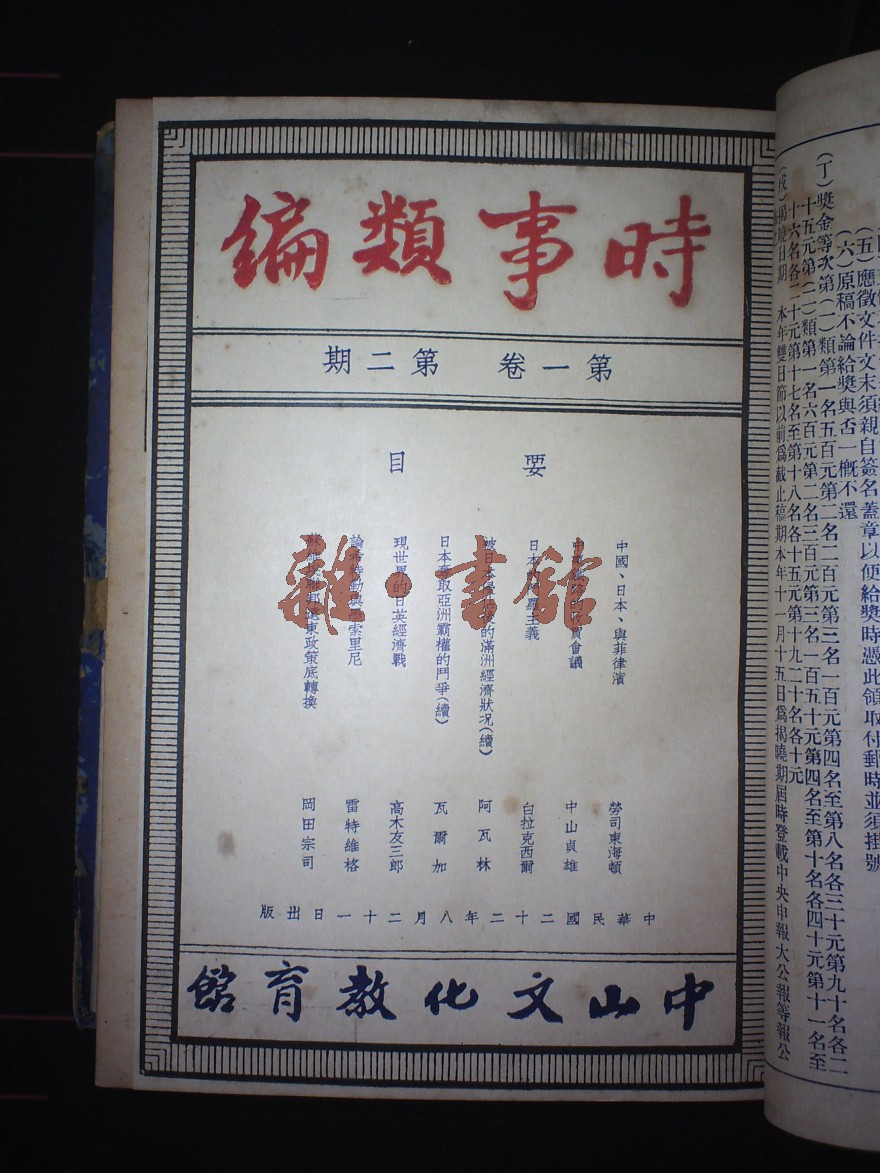 時事類編
第一卷 第二期
要目
中國、日本、與菲律濱 勞司東海頓
會議 中山貞雄
日本 羅主義 白拉克西爾
被日本 的滿洲經濟狀况(續) 阿瓦林
日本 取亞洲霸權的鬥爭(續) 瓦爾加
現世界的日英經濟戰 高木友三郎
論 動與 索里尼 雷特維格
遠東政策底轉換 岡田宗司
中華民國二十二年八月二十一日出版
中山文化教育館
雜·書館
(五)應徵文件文末須親自簽名蓋章以便給獎時憑此領取付郵時並須掛號
(六)原稿不論給獎與否一概不還
(丁)獎金等次第(一)類第一名五百元第二名二百元第三名一百元第四名至第八名各三十元第九十名各二
十五元第(二)類第一名六百元第二名三百元第三名一百五十元第四名至第十名各四十元第十一名至
十六名各二十元第十七名至第十八名各十五元第十九二十名各十元
(戊)揭曉日期 本年雙日節以前爲截止稿期本年十一月十五日爲揭曉期屆時登載中央申報大公報等報公